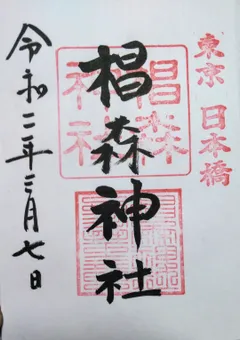 東京 日本橋
椙森神社
椙森神社
令和二年三月七日